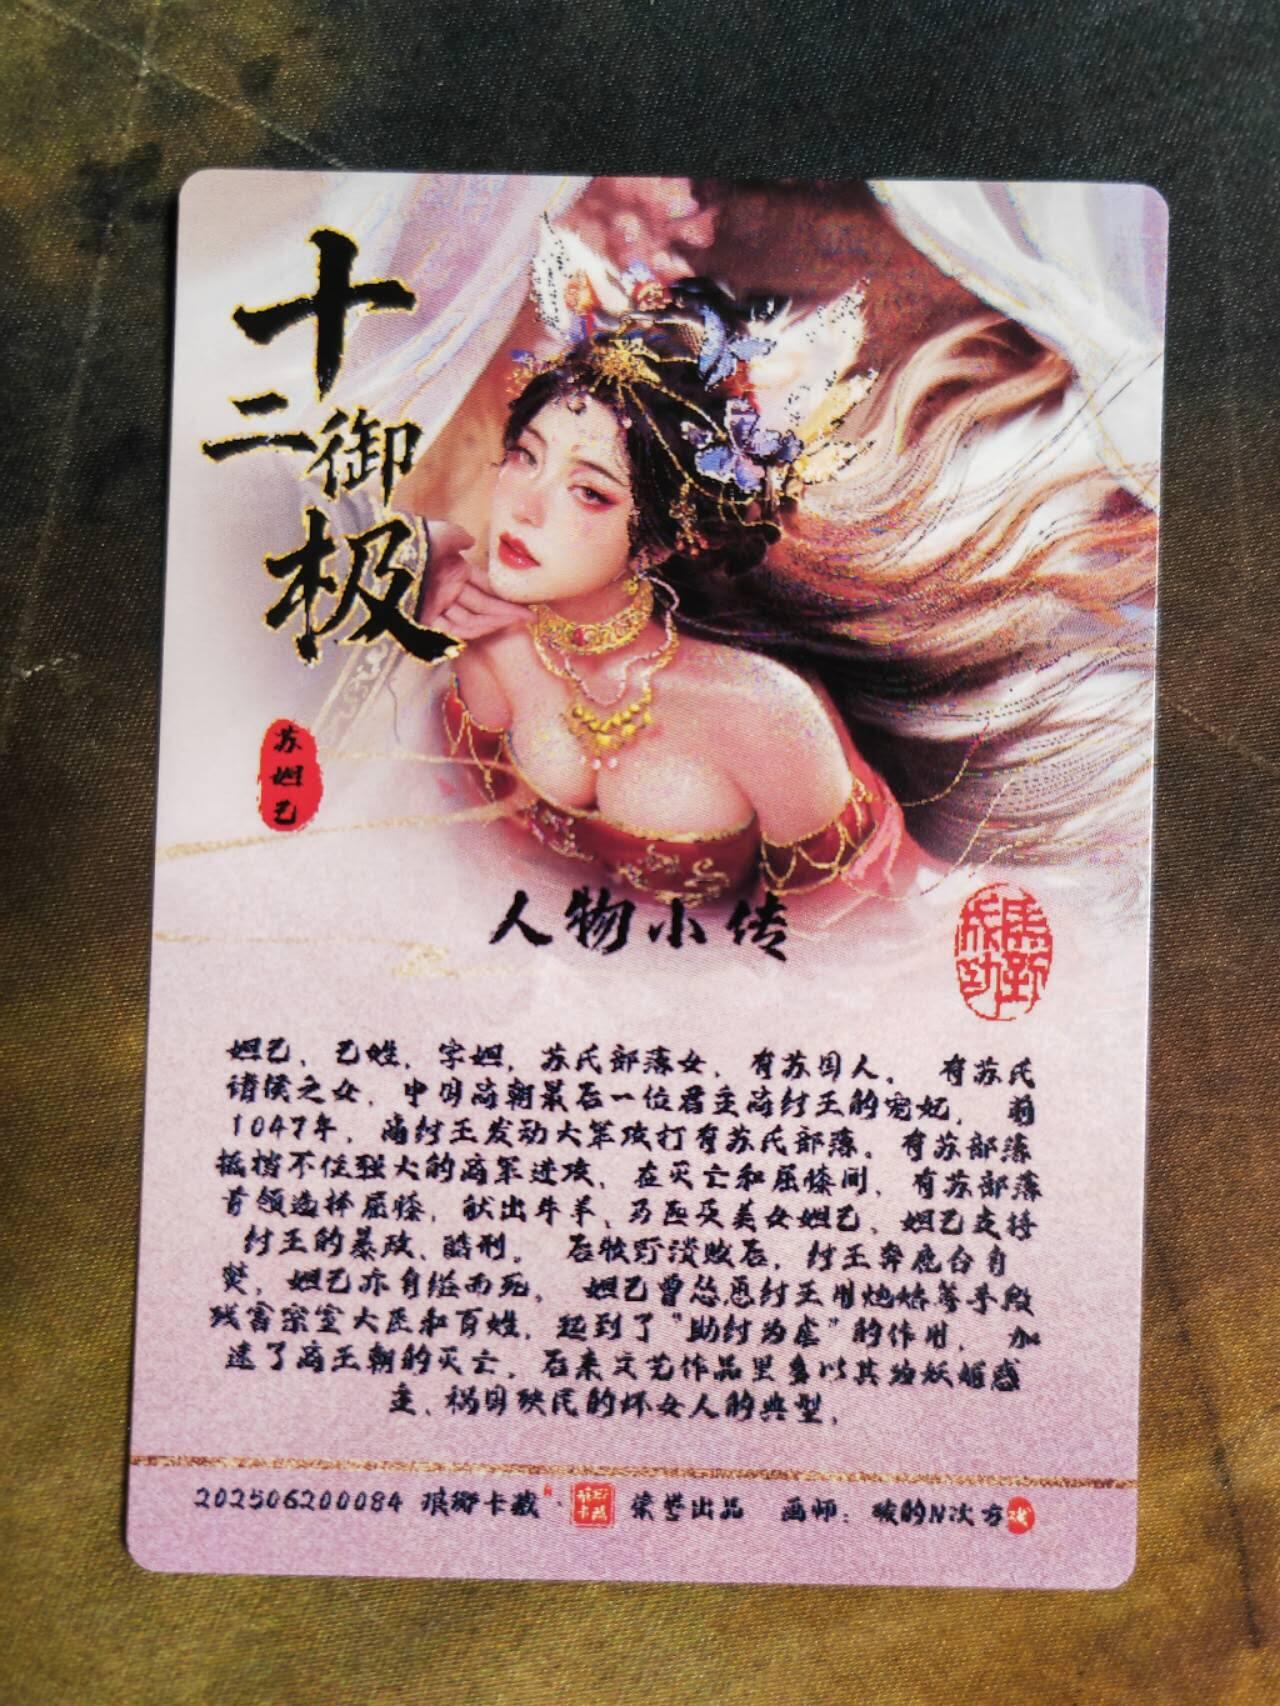 十
二御
极
苏妲己
人物小传
妲己，己姓，字妲，苏氏部落女，有苏国人。 有苏氏
诸侯之女，中国商朝最后一位君主商纣王的宠妃， 前
1047年，商纣王发动大军攻打有苏氏部落。有苏部落
抵挡不住强大的商军进攻，在灭亡和屈膝间，有苏部落
首领选择屈膝，献出牛羊、马匹及美女妲己，妲己支持
纣王的暴政、酷刑。 后牧野溃败后，纣王奔鹿台自
焚，妲己亦自缢而死。 妲己曾怂恿纣王用炮烙等手段
残害宗室大臣和百姓，起到了“助纣为虐”的作用， 加
速了商王朝的灭亡，后来文艺作品里多以其为妖姬惑
主、祸国殃民的坏女人的典型。
202506200084 琅琊卡藏 荣誉出品 画师：破的N次方